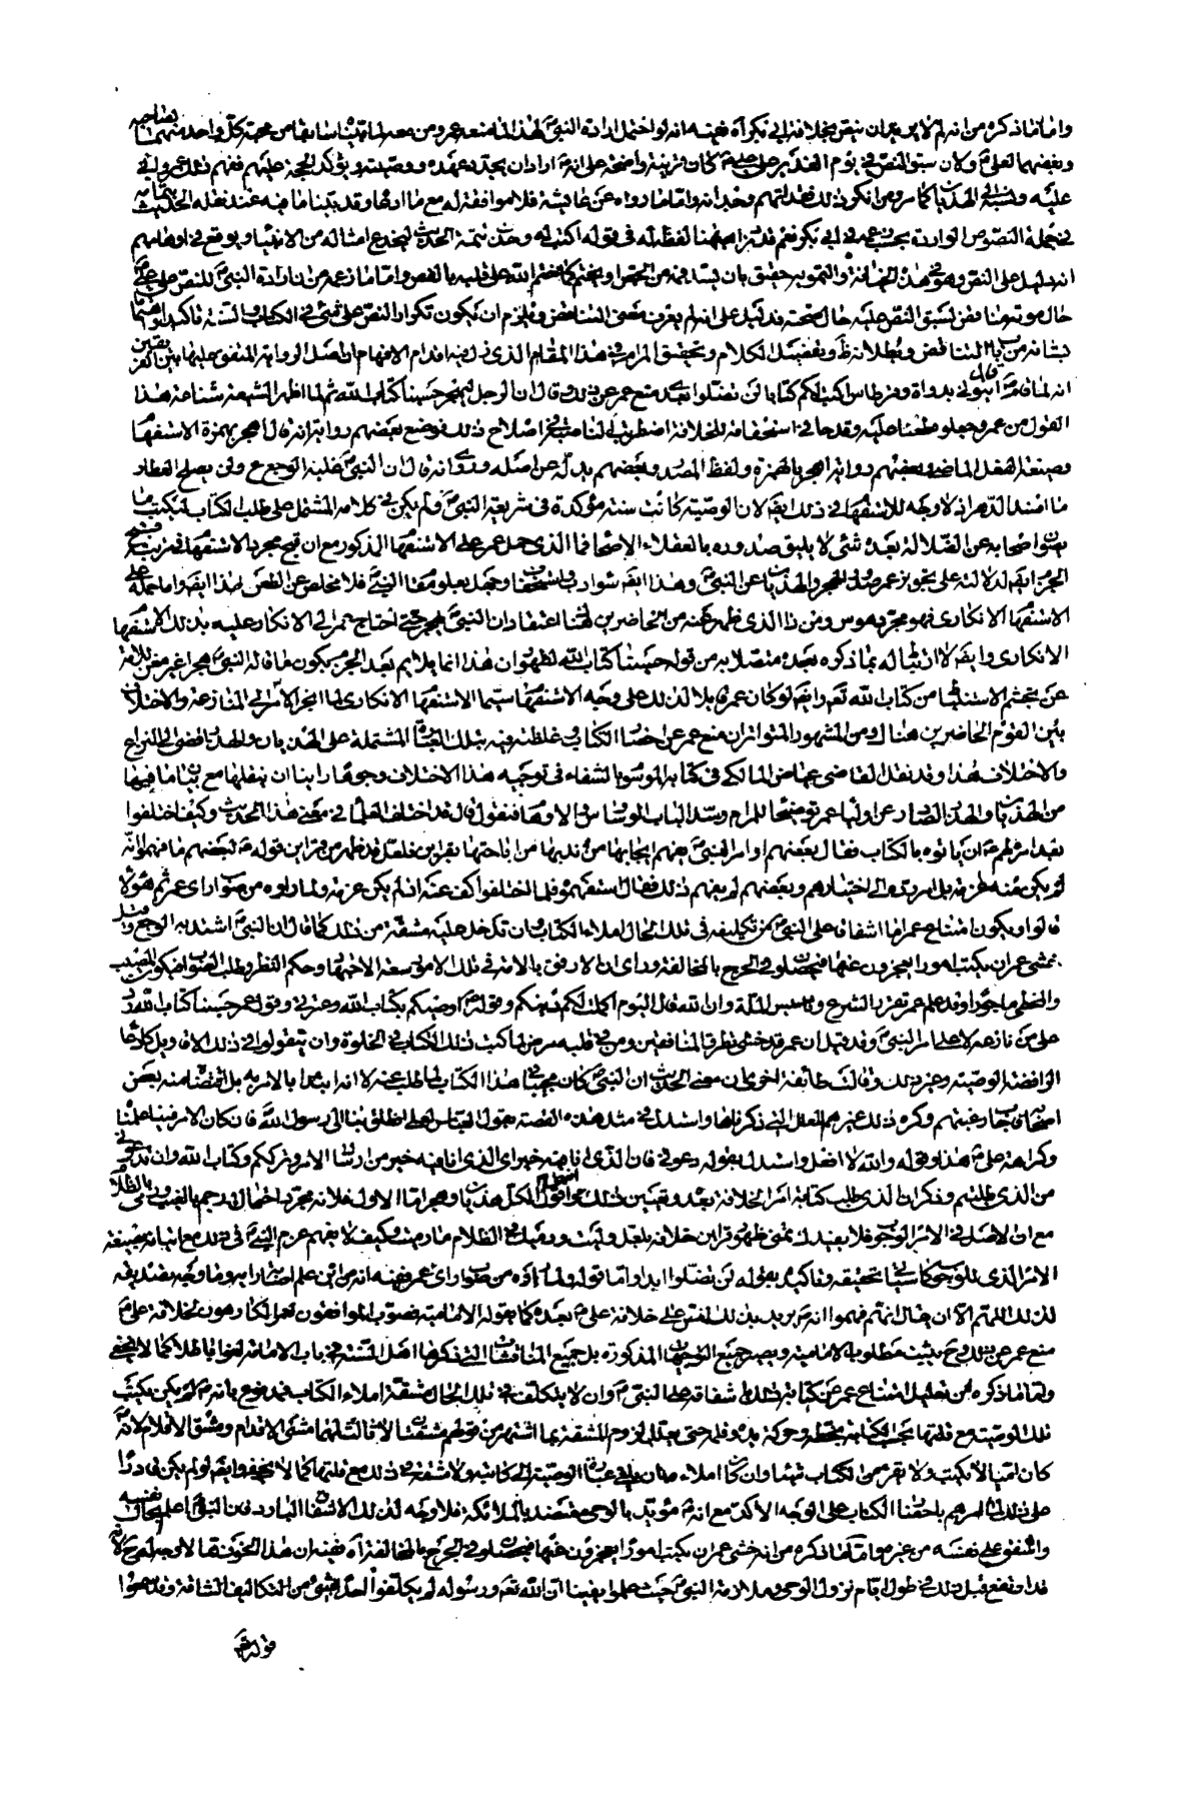 واما ما ذكره من انه لم لا يريد ان ينص بخلافة ابي بكر آه ففيه انه لو احتمل ارادة النبي لهذا لما منعه عمر ومن معه لما تبين سابقا من محبة كل واحد منهما لصاحبه
وبغضهما لعلي ولان سبق النص في يوم الغدير على علي كان قرينة واضحة على انه اراد ان يجدد عهده ووصيته ويؤكد الحجة عليهم ففهم ذلك عمر
عليه ونسبه الى الهذيان كما مر ومن انكر ذلك فقد اتهم وجدانه واما ما رواه عن عايشة فلا موافقة له مع ما ادعاه وقد بينا ما فيه عند نقله الحديث
في جملة النصوص الواردة بحسب زعمه في ابي بكر نعم قد ههنا لفظ له في قوله اكتب له وحذف تتمة الحديث ليخدع امثاله من الاغبياء ويوقع في اوهامهم
انه دليل على النص وهو في هذه الخيانة والتمويه حقيق بان من ويختم كما ختم الله على قلبه واما ما زعمه من ان ارادة النبي للنص على علي
حال موته ينافض لسبق النص عليه حال صحته فدليل على انه لم يعرف معنى التناقض ويلزم ان يكون تكرار النص على شيء في الكتاب والسنة تأكيدا
من باب التناقض وبطلانه ظ وتفصيل الكلام وتحقيق المرام في هذا المقام الذي زل فيه اقدام الافهام ان اصل الرواية المتفق عليها بين الفريقين
انه لما قال ايتوني بدواة وقرطاس اكتب لكم كتابا لن تضلوا بعدي منع عمر عن ذلك وقال ان الرجل ليهجر حسبنا كتاب الله ثم لما اظهر الشيعة شناعة هذا
القول من عمر وجعلوه طعنا عليه وقدحا في استحقاقه للخلافة اضطرب في اصلاح ذلك فوضع بعضهم رواية انه قال اهجر بهمزة الاستفهام
وصيغة الفعل الماضي وبعضهم رواية اهجرا بالهمزة ولفظ المصدر وبعضهم بدله عن اصله وروى انه قال ان النبي غلبه الوجع ولن يصلح العطار
ما افسد الدهر اذ لا وجه للاستفهام في ذلك ايض لان الوصية كانت سنة مؤكدة في شريعة النبي ولم يكن في كلامه المشتمل على طلب الكتاب ليكتب ما
يصون اصحابه عن الضلالة بعده شيء لا يليق صدوره بالعقلاء الذي حمل عمر على الاستفهام المذكور مع ان قبح مجرد الاستفهام
ايض لدلالته على تجويز عمر صدور الهجر والهذيان عن النبي وهذا ايض سوء ادب واستخفاف وجهل بعلو مقام النبي فلا مخلص عن الطعن بهذا ايض واما حمله على
الاستفهام الانكاري فهو مجرد هوس ومن ذا الذي ظهر عنه من الحاضرين اعتقاد ان النبي يهجر حتى احتاج عمر الى الانكار عليه بذلك الاستفهام
الانكاري وايض لا ارتباط له بما ذكره بعده متصلا به من قوله حسبنا كتاب الله لظهور ان هذا انما يلايم بعد الجزم بكون ما قاله النبي هجرا
عن تجشم الاستنباط من كتاب الله تع وايض لو كان عمر قال ذلك على وجه الاستفهام سيما الاستفهام الانكاري لما انجر الامر الى المنازعة والاختلاف
بين القوم الحاضرين هناك ومن المشهور المتواتر ان منع عمر عن احضار الكتاب وغلظته فيه بتلك العبارة المشتملة على الهذيان والهذر افضى الى النزاع
والاختلاف هذا وقد نقل القاضي عياض المالكي في كتابه الموسوم بالشفاء في توجيه هذا الاختلاف وجوها راينا ان ننقلها مع بيان ما فيها
من الهذيان والهذر الصادر عن اولياء عمر توضيحا للمرام وسدا لباب الوساوس والاوهام فنقول قال قد اختلف العلماء في معنى هذا الحديث وكيف اختلفوا
بعد امره لهم ان ياتوه بالكتاب فقال بعضهم اوامر النبي يفهم ايجابها من ندبها من اباحتها بقراين فلعل قد ظهر من قراين قوله لبعضهم ما فهموا انه
لم يكن منه عزمة بل امر رده الى اختيارهم وبعضهم لم يفهم ذلك فقال استفهموه فلما اختلفوا كف عنه اذ لم يكن عزمة ولما راوه من صواب راي عمر ثم هؤلاء
قالوا ويكون امتناع عمر اما اشفاقا على النبي من تكليفه في تلك الحال املاء الكتاب وان تدخل عليه مشقة من ذلك كما قال ان النبي اشتد به الوجع وقيل
خشي عمر ان يكتب امورا يعجزون عنها فيحصلون في الحرج بالمخالفة وراى ان الارفق بالامة في تلك الامور سعة الاجتهاد وحكم النظر وطلب الصواب فيكون المصيب
والمخطي ماجورا وقد علم عمر تقرر الشرع وتاسيس الملة وان الله قال اليوم اكملت لكم دينكم وقوله اوصيكم بكتاب الله وعترتي وقول عمر حسبنا كتاب الله رد
على من نازعه لا على امر النبي وقد قيل ان عمر قد خشي تطرق المنافقين ومن في قلبه مرض لما كتب ذلك الكتاب في الخلوة وان يتقولوا في ذلك الاقاويل كادعاء
الرافضة الوصية وغير ذلك وقالت طائفة اخرى ان معنى الحديث ان النبي كان مجيبا في هذا الكتاب لما طلب منه لا انه ابتدا بالامر به بل اقتضاه منه بعض
اصحابه فاجاب رغبتهم وكره ذلك غيرهم للعلل التي ذكرناها واستدل في مثل هذه القصة بقول العباس لعلي انطلق بنا الى رسول الله فان كان الامر فينا علمناه
وكراهة علي هذا وقوله والله لا افعل واستدل بقوله دعوني فان الذي انا فيه خير اي الذي انا فيه خير من ارسال الامر وترككم وكتاب الله وان تدعوني
من الذي طلبتم وذكر ان الذي طلب كتابة امر الخلافة بعده وتعيين ذلك اقول الكل هذيان وهجر اما الاول فلانه مجرد احتمال ورجم بالغيب
مع ان الاصل في الامر الوجوب فلا يعدل عنه بدون ظهور قراين خلافه وكيف لا يفهم عزم النبي في ذلك مع اتيانه بصيغة
الامر الذي للوجوب كما سياتي تحقيقه وتاكيده بقوله لن تضلوا ابدا واما قوله ولما راوه من صواب راي عمر ففيه انه من اين علم اصابة رايه وما وجه تصديقه
لذلك اللهم الا ان يقال انهم فهموا انه يريد بذلك النص على خلافة علي بعده كما يقوله الامامية فصوب الموافقون لعمر الكارهون لخلافة علي
منع عمر عن ذلك وح يثبت مطلوب الامامية ويصير جميع التوجيهات المذكورة بل جميع المناقشات التي ذكرها اهل السنة في باب الامامة لغوا باطلا كما لا يخفى
واما ما ذكره من تعليل امتناع عمر عن كتابة ذلك باشفاقه على النبي وان لا يتكلف في تلك الحال مشقة املاء الكتاب فمدفوع بانه لم يكن يكتب
تلك الوصية مع قلتها بحسب الكتابة بخطه وحركة يده وقلمه حتى يعتل بلزوم المشقة بما اشتهر من قولهم مشقتان لا ثالث لهما مشق الاقدام ومشق الاقلام لانه
كان اميا لا يكتب ولا يقرء من الكتاب شيئا وان كان املاء الوصية الى كاتبه ولا مشقة في ذلك مع قلتها كما لا يخفى وايض لو لم يكن قادرا
على ذلك لما امرهم باحضار الكتاب على الوجه الاكد مع انه مؤيد بالوحي معتضد بالملائكة فلا وجه لذلك الاشفاق البارد فان النبي اعلم بحال نفسه
واشفق على نفسه من غيره واما ما ذكره من انه خشي عمر ان يكتب امورا يعجزون عنها فيحصلون في الحرج بالمخالفة آه ففيه ان هذا الخوف مما لا وجه له
قد اوقع قبل ذلك في طول ايام نزول الوحي وملازمة النبي حيث علموا يقينا ان الله تع ورسوله لم يكلفوا احدا بشيء من التكاليف الشاقة وقد سمعوا
قوله تع